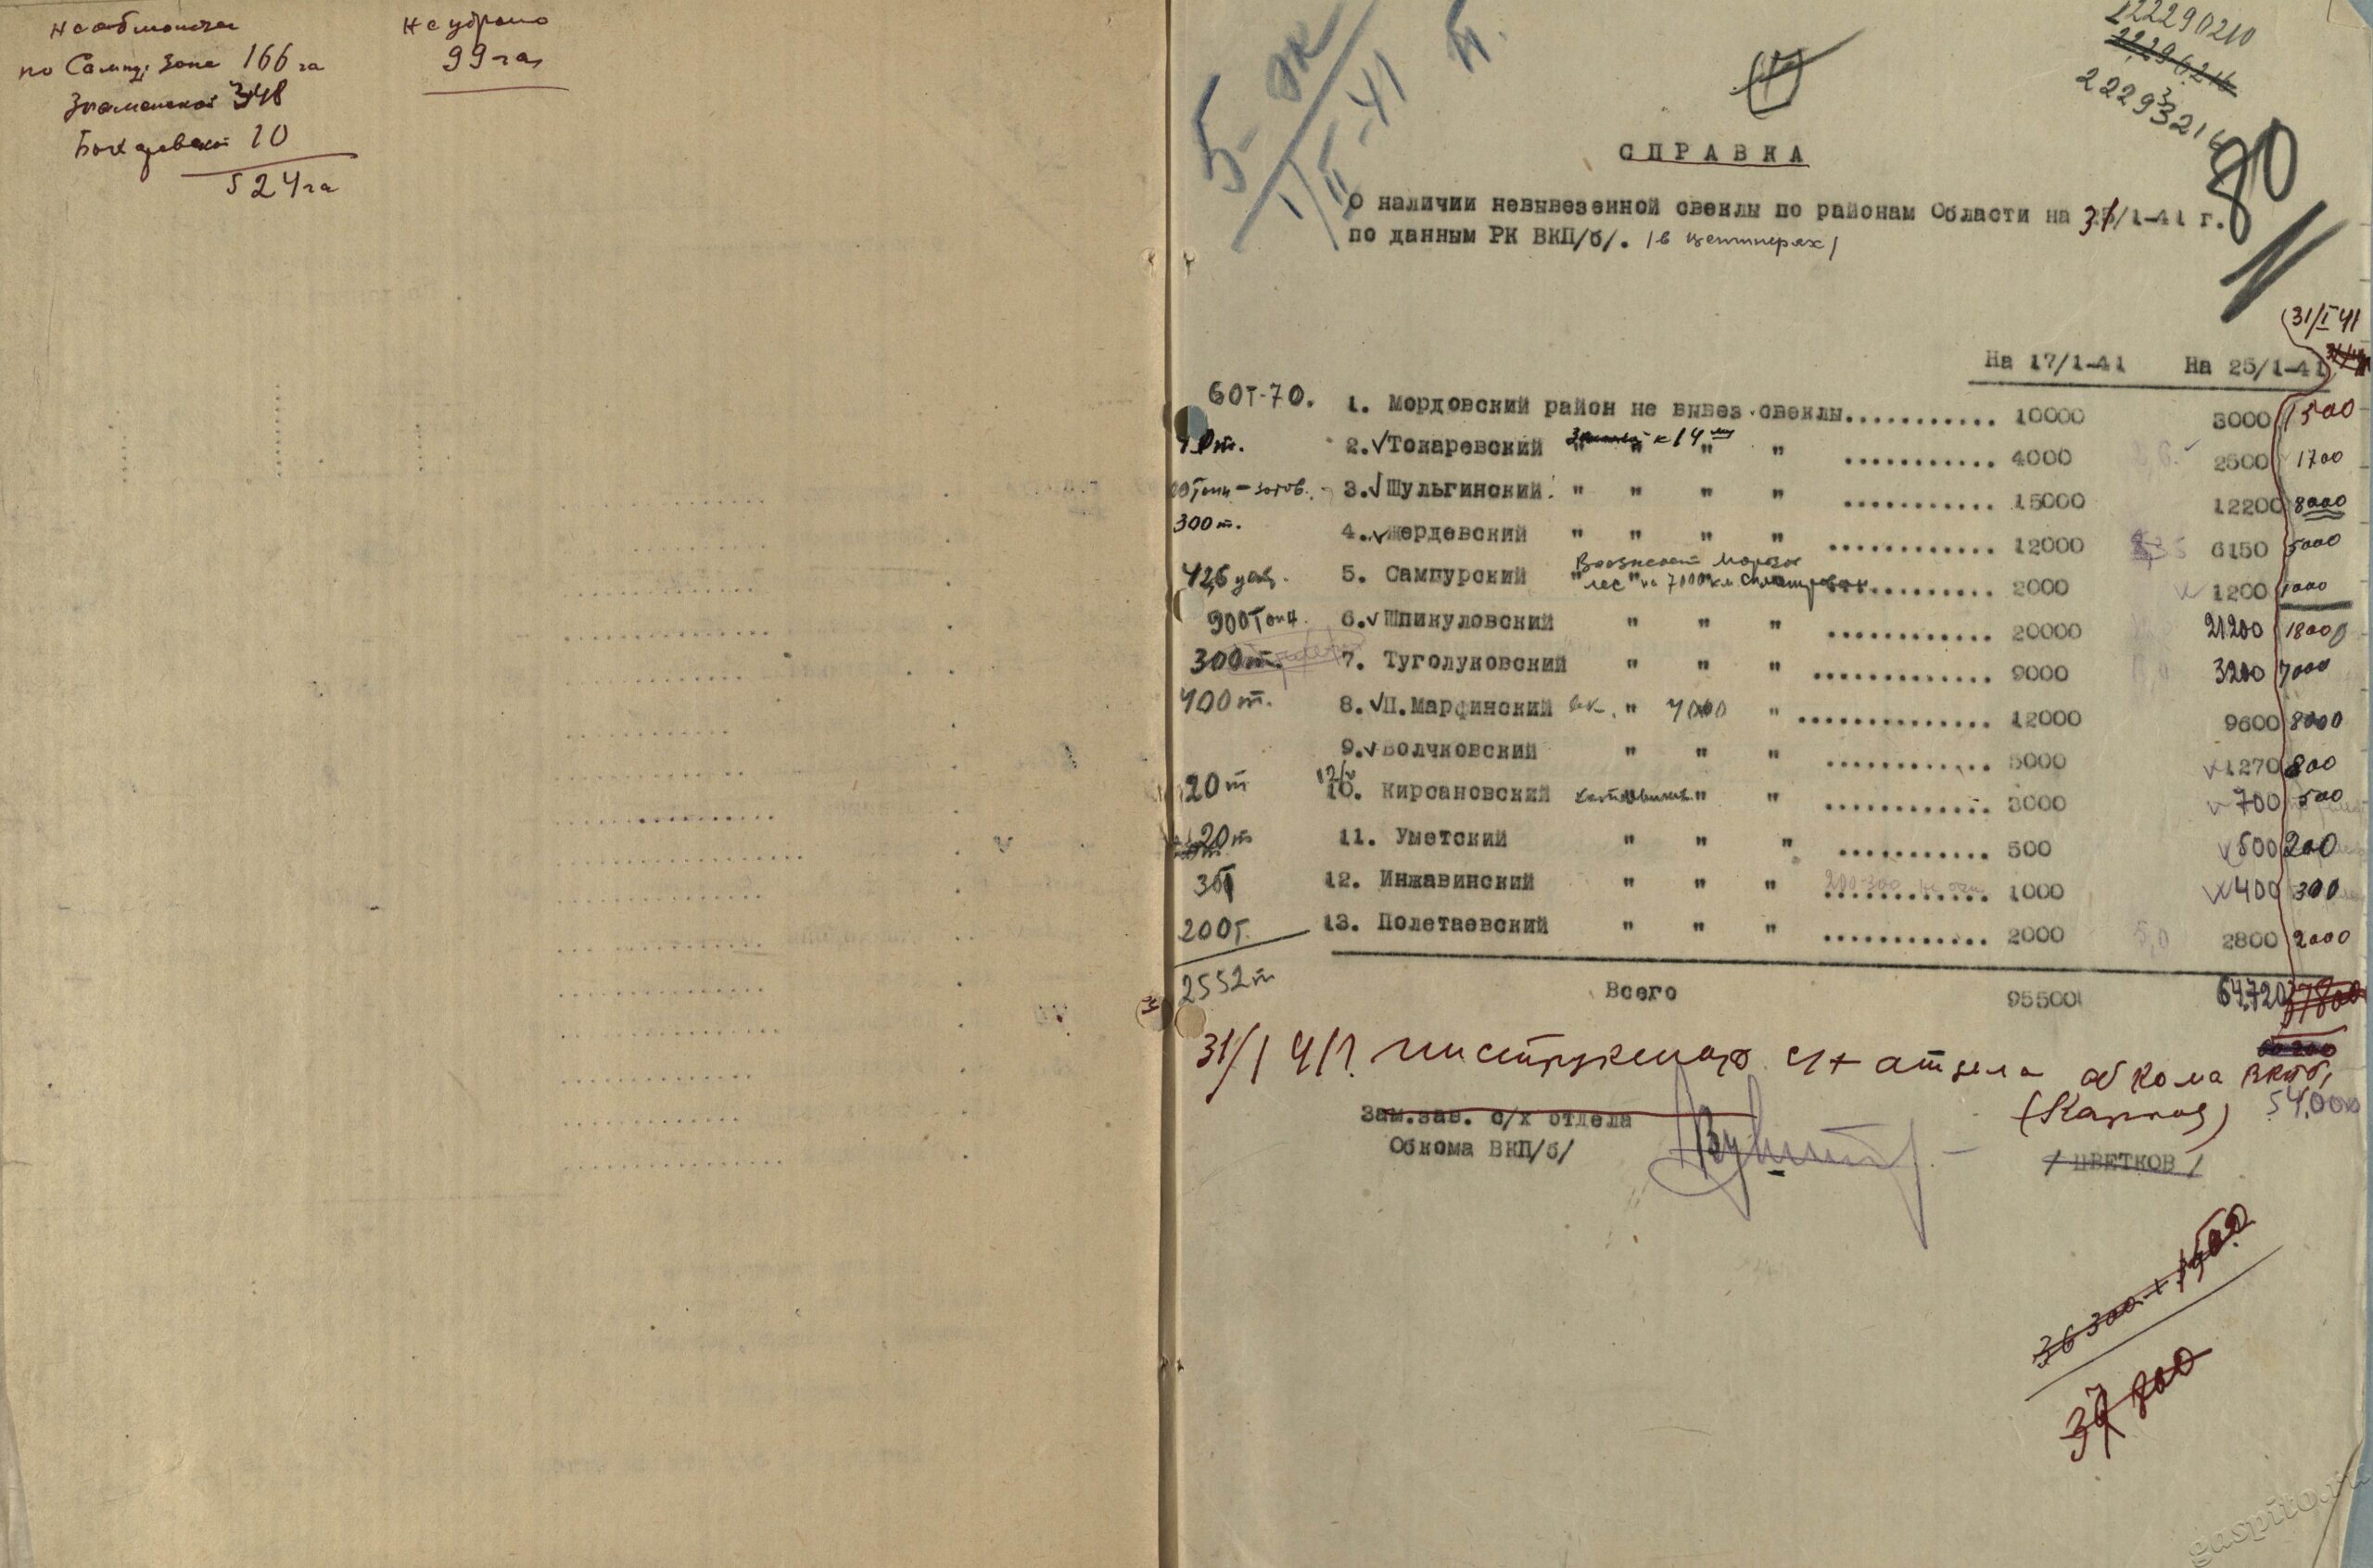 не убрано
по Сампур. зоне 166 га
99 га
Знаменской 348
10
524 га
122290210
80
СПРАВКА
О наличии невывезенной свеклы по районам Области на 31/1-41 г.
по данным РК ВКП/б/. /в центнерах/
31/I 41
На 17/1-41 На 25/1-41
60т-70. 1. Мордовский район не вывез.свеклы........... 10000 3000 1500
2.✓Токаревский " " " " ........... 4000 2500 1700
3.✓Шульгинский " " " " ........... 15000 12200 8000
300т. 4.✓Жердевский " " " " ............ 12000 6150 5000
5. Сампурский " " " ............ 2000 1200 1000
900 тонн. 6.✓Шпикуловский " " " ............ 20000 21200 18000
300т. 7. Туголуковский " " " ............. 9000 3200 7000
400т. 8.✓П.Марфинский " 4000 " .............. 12000 9600 8000
9.✓Волчковский " " " ............ 5000 1270 800
20т 10. Кирсановский " " " ............ 3000 700 500
20т 11. Уметский " " " ........... 500 500 200
12. Инжавинский " " " ............ 1000 400 300
200т. 13. Полетаевский " " " ............ 2000 2800 2000
2552т
Всего 95500 64720 37800
31/I 41г. инструктор с/х отдела обкома ВКПб/
(Карпов) 54,000
Зам.зав. с/х отдела
Обкома ВКП/б/
/ ЦВЕТКОВ /
36300 + 1500
37800
gaspito.ru